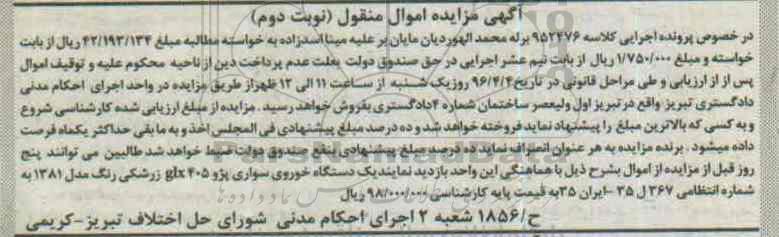 آگهی مزایده اموال منقول (نوبت دوم)
در خصوص پرونده اجرایی کلاسه ۹۵۲۴۷۶ برله محمد الهوردیان مایان بر علیه مینا اسدزاده به خواسته مطالبه مبلغ ۴۲/۱۹۳/۱۳۴ ریال از بابت
خواسته و مبلغ ۱/۷۵۰/۰۰۰ ریال از بابت نیم عشر اجرایی در حق صندوق دولت بعلت عدم پرداخت دین از ناحیه محکوم علیه و توقیف اموال
پس از از ارزیابی و طی مراحل قانونی در تاریخ ۹۶/۴/۴ روز یک شنبه از ساعت ۱۱ الی ۱۲ ظهر از طریق مزایده در واحد اجرای احکام مدنی
دادگستری تبریز واقع در تبریز اول ولیعصر ساختمان شماره ۴ دادگستری بفروش خواهد رسید. مزایده از مبلغ ارزیابی شده کارشناسی شروع
و به کسی که بالاترین مبلغ را پیشنهاد نماید فروخته خواهد شد و ده درصد مبلغ پیشنهادی فی المجلس اخذ و به مابقی حداکثر یکماه فرصت
داده میشود. برنده مزایده به هر عنوان انصراف نماید ده درصد مبلغ پیشنهادی بنفع صندوق دولت ضبط خواهد شد طالبین می توانند پنج
روز قبل از مزایده از اموال بشرح ذیل با هماهنگی این واحد بازدید نمایند یک دستگاه خوروی سواری پژو ۴۰۵ glx زرشکی رنگ مدل ۱۳۸۱ به
شماره انتظامی ۳۶۷ ل ۳۵ -ایران ۳۵ به قیمت پایه کارشناسی ۹۸/۰۰۰/۰۰۰ ریال
ح/۱۸۵۶ شعبه ۲ اجرای احکام مدنی شورای حل اختلاف تبریز-کریمی